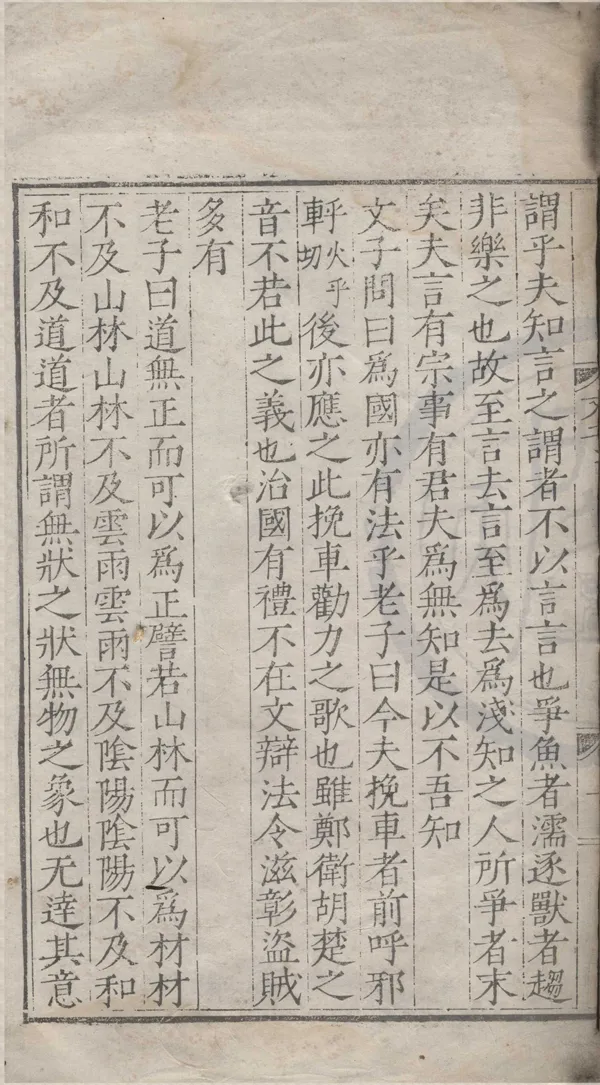 謂乎夫知言之謂者不以言言也爭魚者濡逐獸者趨
非樂之也故至言去言至爲去爲淺知之人所爭者末
矣夫言有宗事有君夫爲無知是以不吾知
文子問曰爲國亦有法乎老子曰今夫挽車者前呼邪
軤火乎切後亦應之此挽車勸力之歌也雖鄭衛胡楚之
音不若此之義也治國有禮不在文辯法令滋彰盜賊
多有
老子曰道無正而可以爲正譬若山林而可以爲材材
不及山林山林不及雲雨雲雨不及陰陽陰陽不及和
和不及道道者所謂無狀之狀無物之象也无達其意